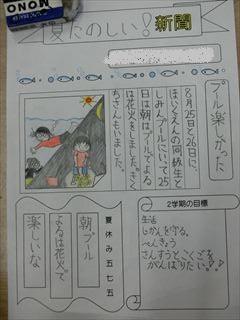 MONO
夏たのしい!新聞
プール楽しかった
8月25日と26日に
ほいくえんの同級生と
しみんプールにいて25
日は朝はプールでよる
は花火をしました。
ちさんもいました。
夏休み五七五
朝プール
よるは花火で
楽しいな
2学期の目標
生活
じかんを守る。
べんきょう
さんすうとこくごを
がんばりたい